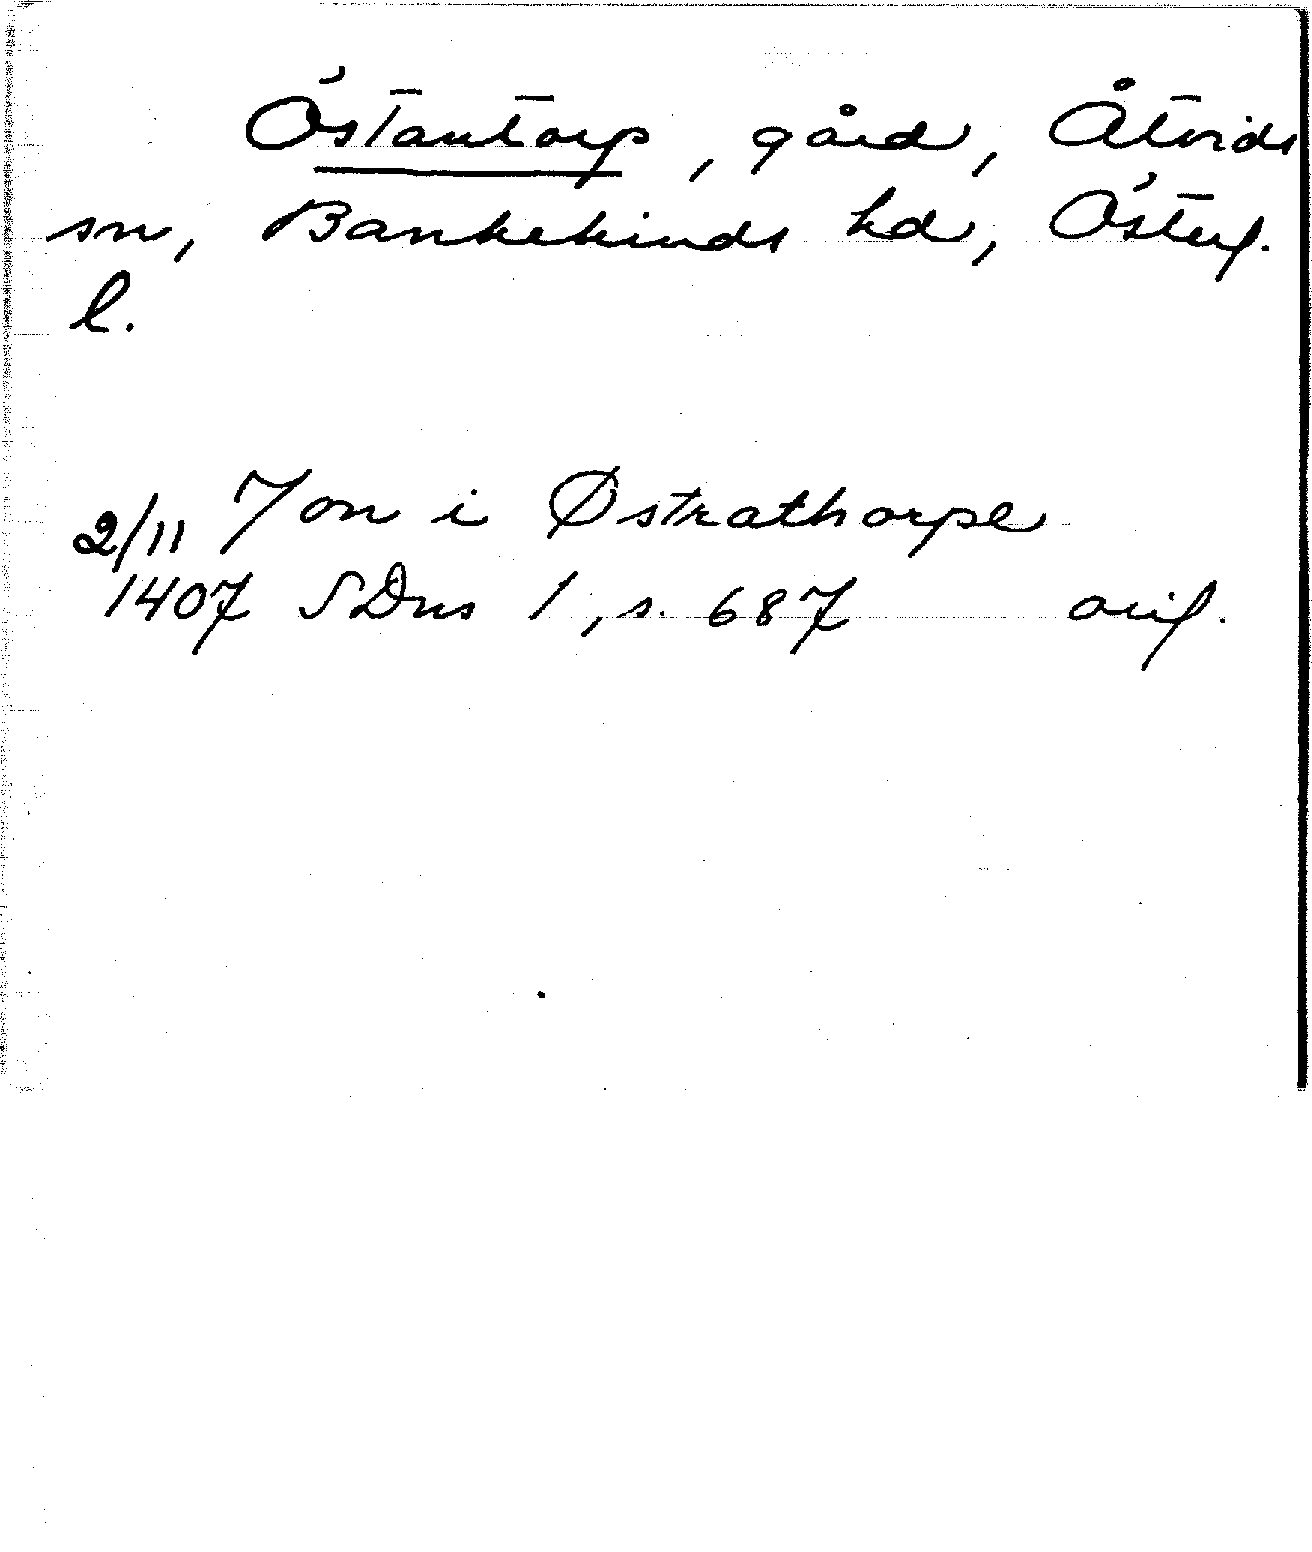 Östantorp, gård, Åtvids
sn, Bankekinds hd, Österg.
l.
2/11 Jon i Østrathorpe
1407 SDns 1, s. 687 orig.